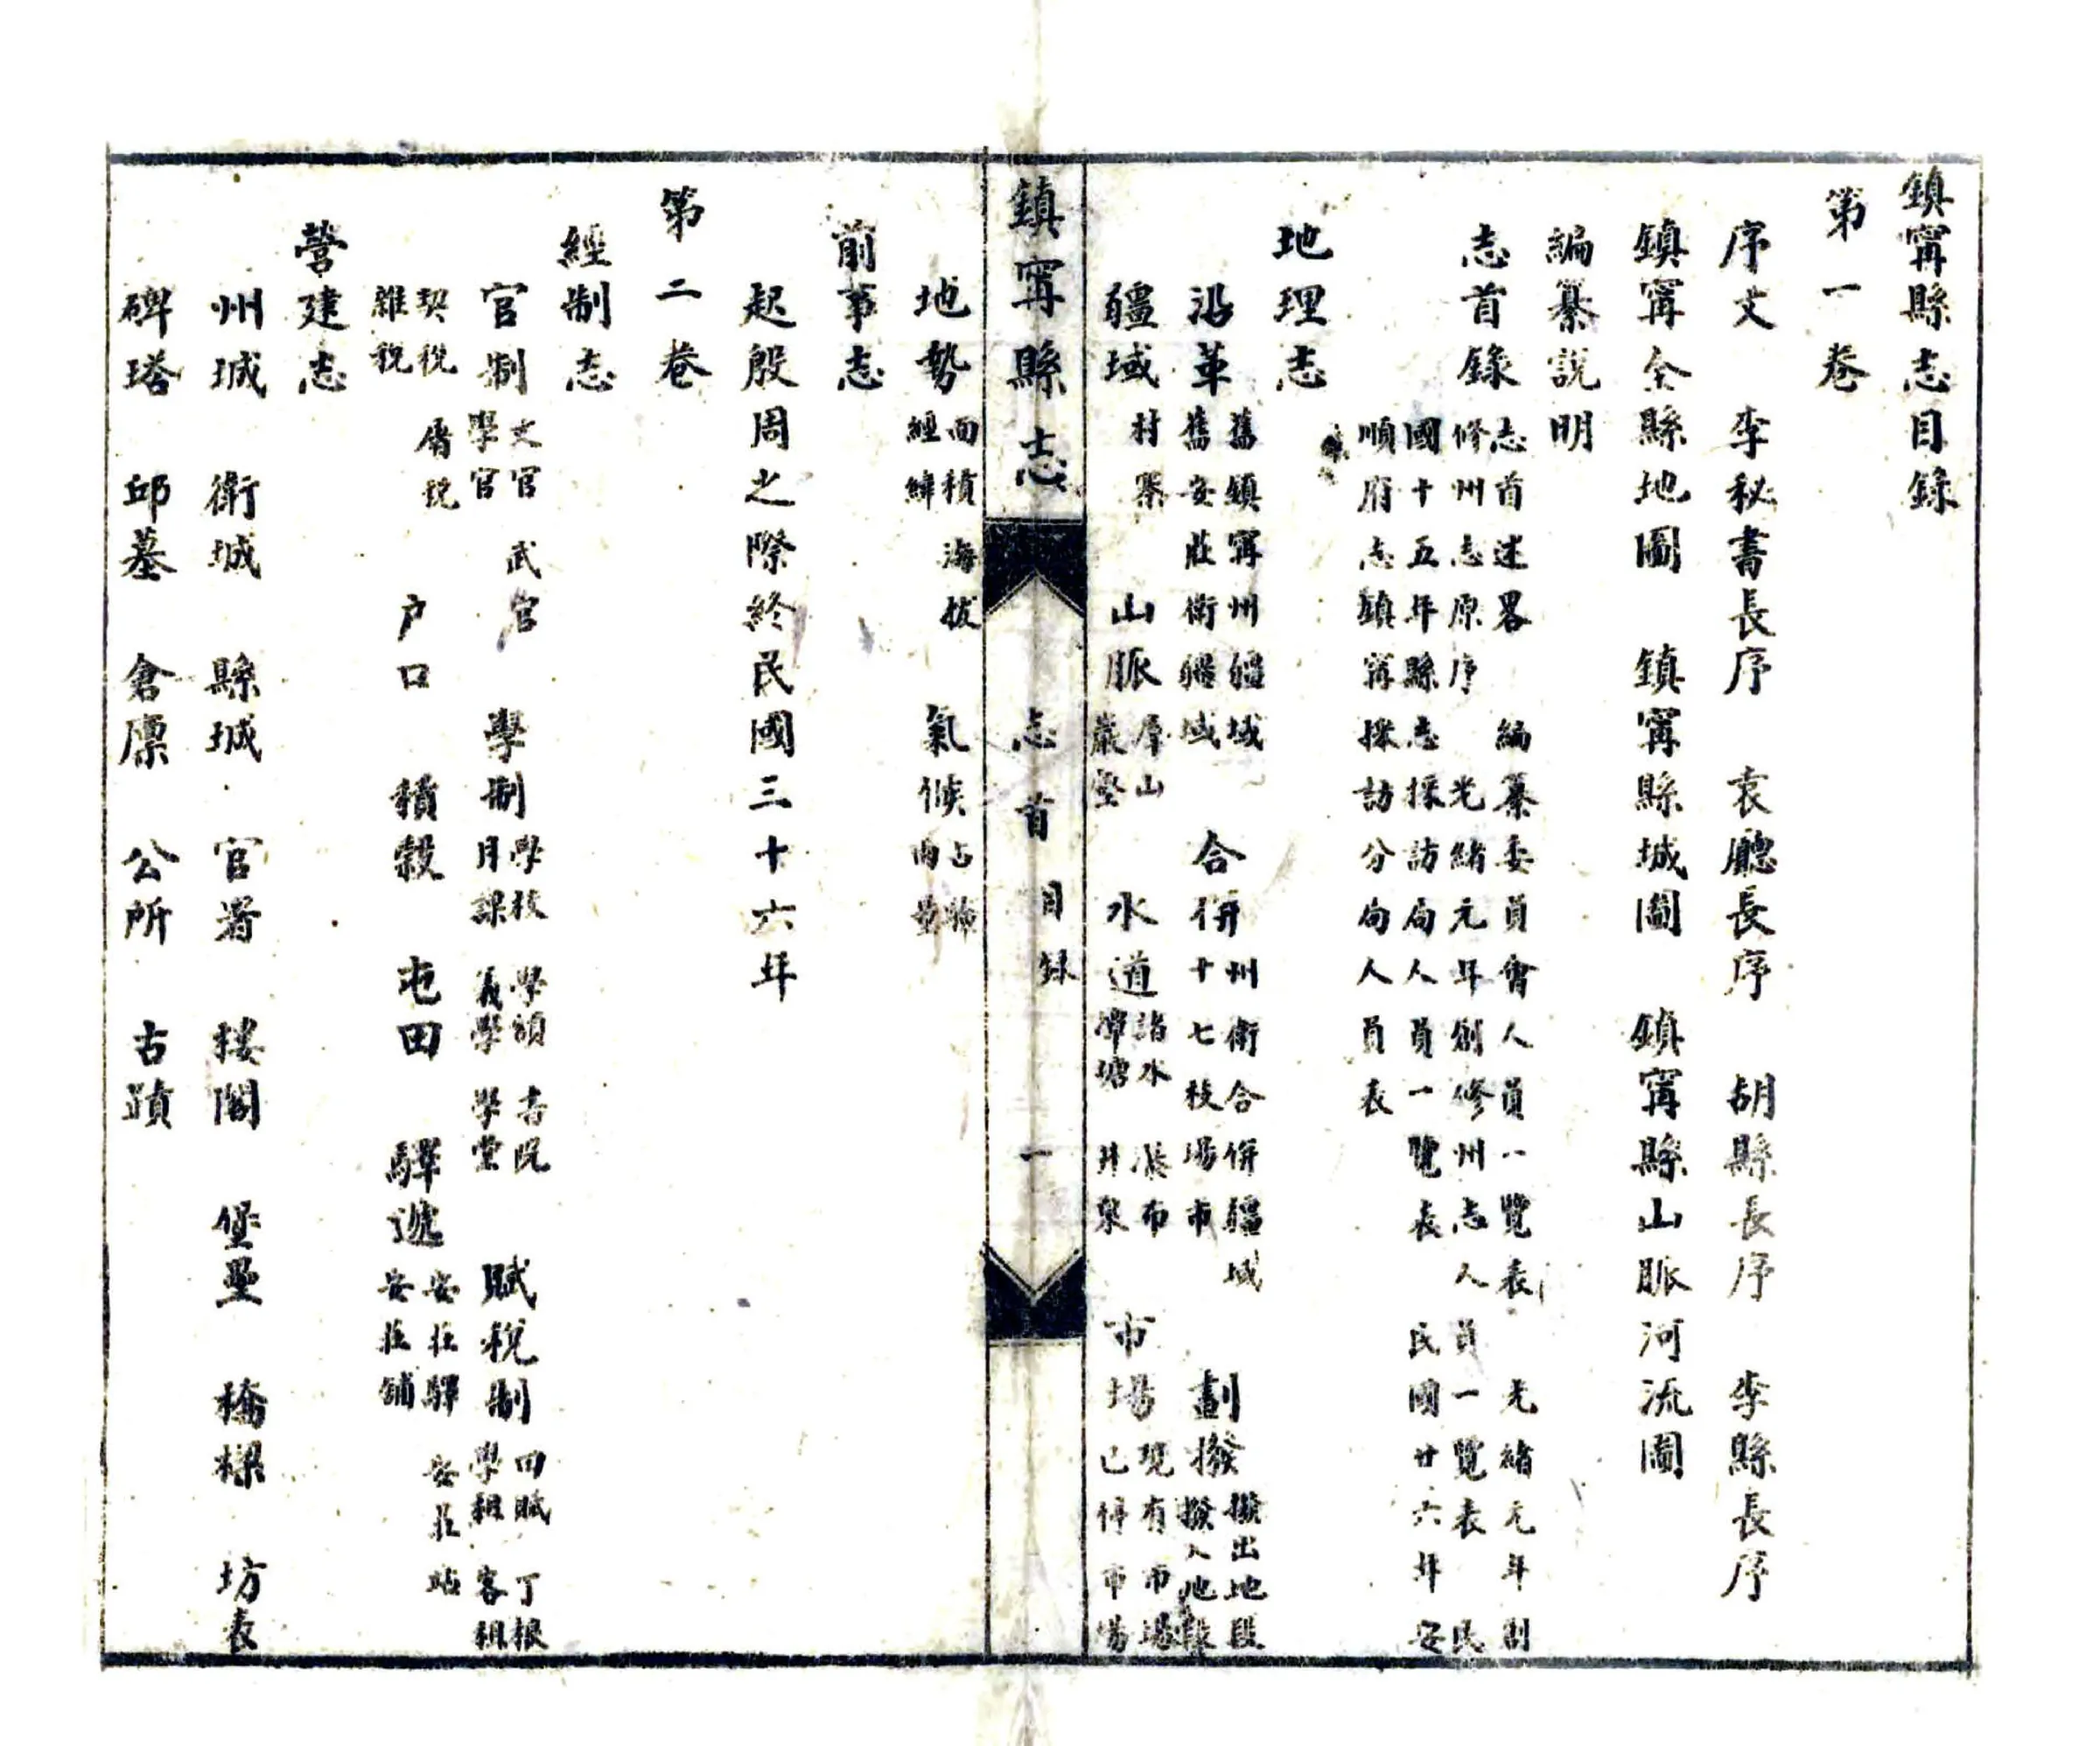 鎮甯縣志目錄
第一卷
序文　李秘書長序　袁廳長序　胡縣長序　李縣長序
鎮甯全縣地圖　鎮甯縣城圖　鎮甯縣山脈河流圖
編纂說明
志首錄　志首述畧　編纂委員會人員一覽表　光緒元年創
修州志原序　光緒元年創修州志人員一覽表　民
國十五年縣志採訪局人員一覽表　民國廿六年安
順府志鎮甯採訪分局人員表
地理志
沿革　舊鎮甯州疆域　舊安莊衛疆域　合併　州衛合併疆域　十七枝場市　劃撥　撥出地段　撥入地段
疆域　村寨　山脈　群山　巖壑　水道　諸水　潭塘　瀑布　井泉　市場　現有市場　已停市場
鎮甯縣志　志首　目錄　一
地勢　面積　經緯　海拔　氣候　占驗　雨量
前事志
起殷周之際終民國三十六年
第二卷
經制志
官制　文官　學官　武官　學制　學校　月課　學額　義學　書院　學堂　賦稅制　田賦　學租　丁糧　客租
契稅　雜稅　屠稅　戶口　積穀　屯田　驛遞　安莊驛　安莊鋪　安莊站
營建志
州城　衛城　縣城　官署　樓閣　堡壘　橋樑　坊表
碑塔　邱墓　倉廩　公所　古蹟